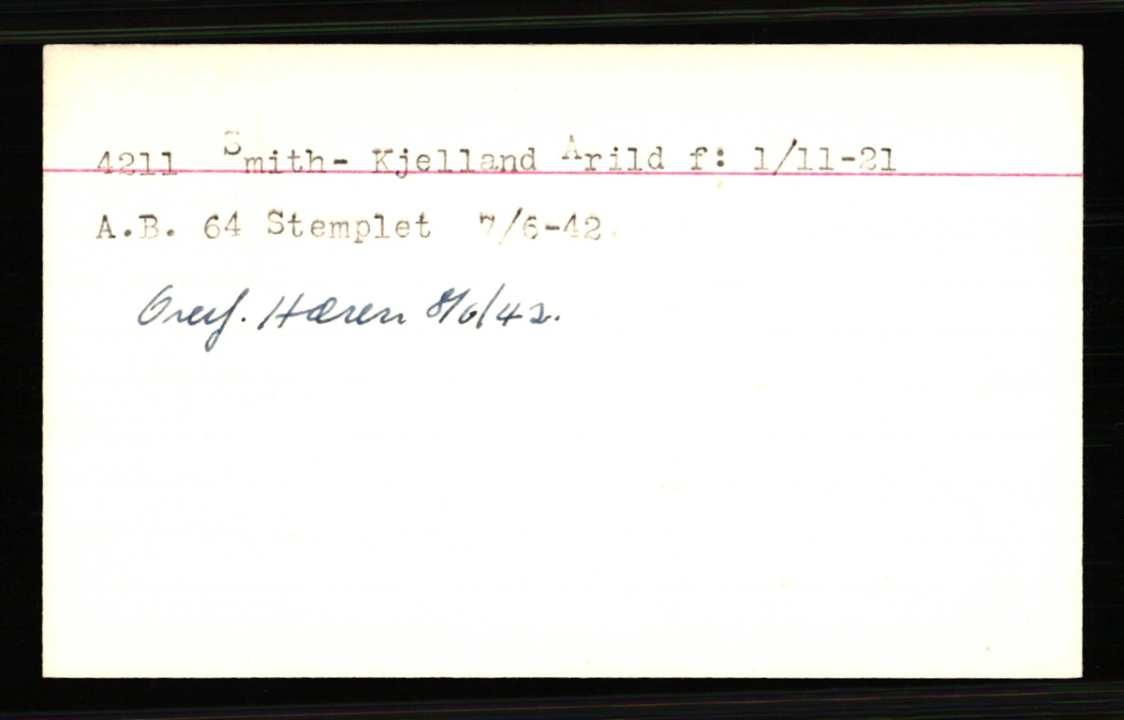 4211 Smith- Kjelland Arild f: 1/11-21
A.B. 64 Stemplet 7/6-42.
Overf. Hæren 8/6/42.